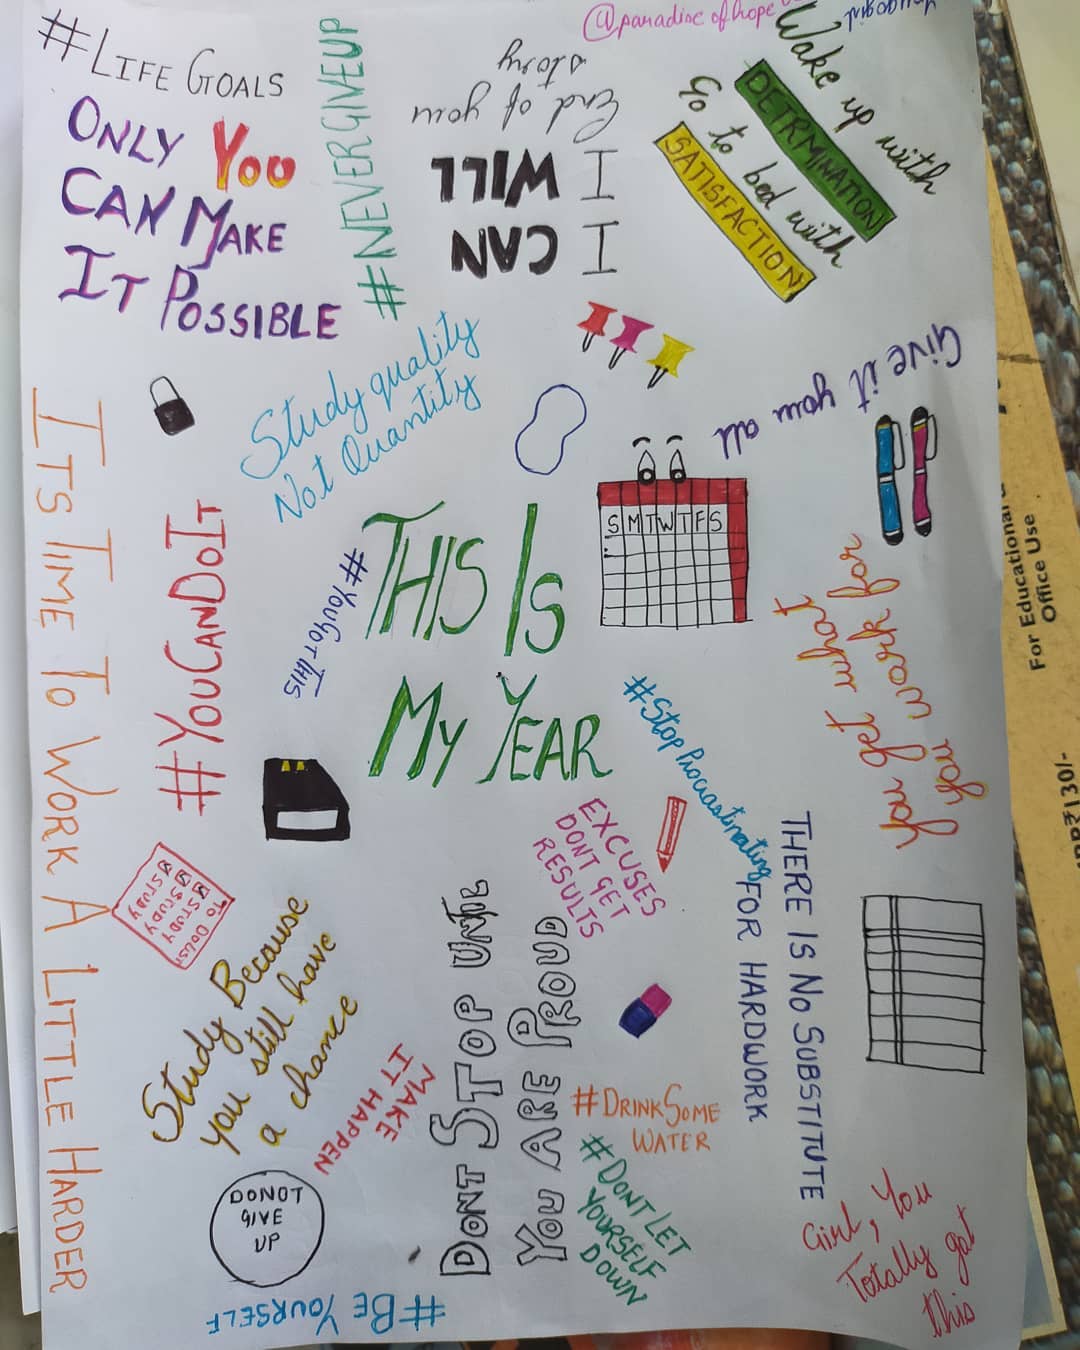 #LIFE GOALS
ONLY YOU
CAN MAKE
IT POSSIBLE
#NEVERGIVEUP
@paradise of hope
I CAN
I WILL
End of you
story
Wake up with
DETRMINATION
Go to bed with
SATISFACTION
Study quality
Not Quantity
Give it you all
ITS TIME TO WORK A LITTLE HARDER
#YOUCANDOIT
#YOUGOTTHIS
THIS IS
MY YEAR
S M T W T F S
you get what
you work for
#StopProcrastinating
EXCUSES
DONT GET
RESULTS
THERE IS NO SUBSTITUTE
FOR HARDWORK
TO DOLIST
STUDY
STUDY
STUDY
Study Because
you still have
a chance
MAKE
IT HAPPEN
DONT STOP UNTIL
YOU ARE PROUD
#DRINKSOME
WATER
#DONT LET
YOURSELF
DOWN
DONOT
GIVE
UP
#BE YOURSELF
Girl, You
Totally got
this
For Educational
Office Use
₹130/-